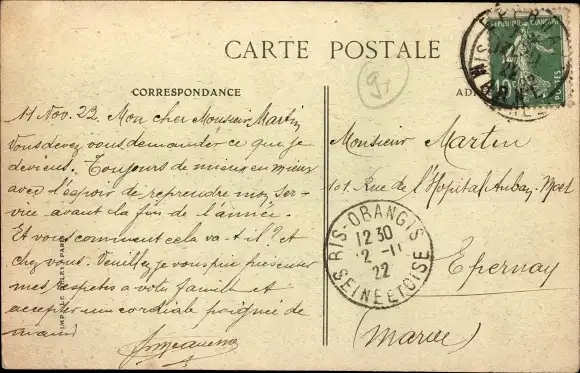 CARTE POSTALE
CORRESPONDANCE
11 Nov. 22 Mon cher Monsieur Martin
Vous devez vous demander ce que je
deviens. Toujours de mieux en mieux
avec l'espoir de reprendre mon ser-
vice avant la fin de l'année.
Et vous comment cela va-t il? et
chez vous. Veuillez je vous prie présenter
mes respectes a votre famille et
accepter une cordiale poignée de
main
Monsieur Martin
101 Rue de l'Hopital Auban-Moet
Epernay
(Marne)
RIS-ORANGIS
12 30
2 -11
22
SEINE ET OISE
REPUBLIQUE FRANÇAISE
10
POSTES